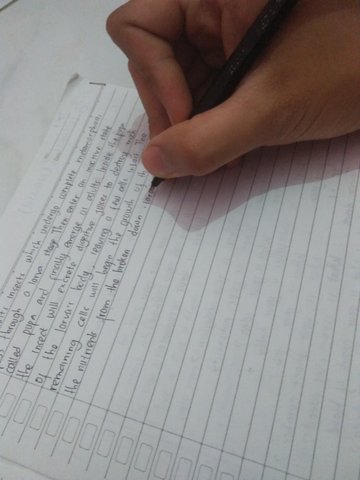 insects which undergo complete metamorphosis,
through a larva stage. Then enter an inactive state
called pupa and finally emerge as adults. Inside the pupa
the insect will excrete digestive juices to destroy much
of the larva's body, leaving a few cell intact. The
remaining cells will begin the growth of th
the nutrients from the broken down larva